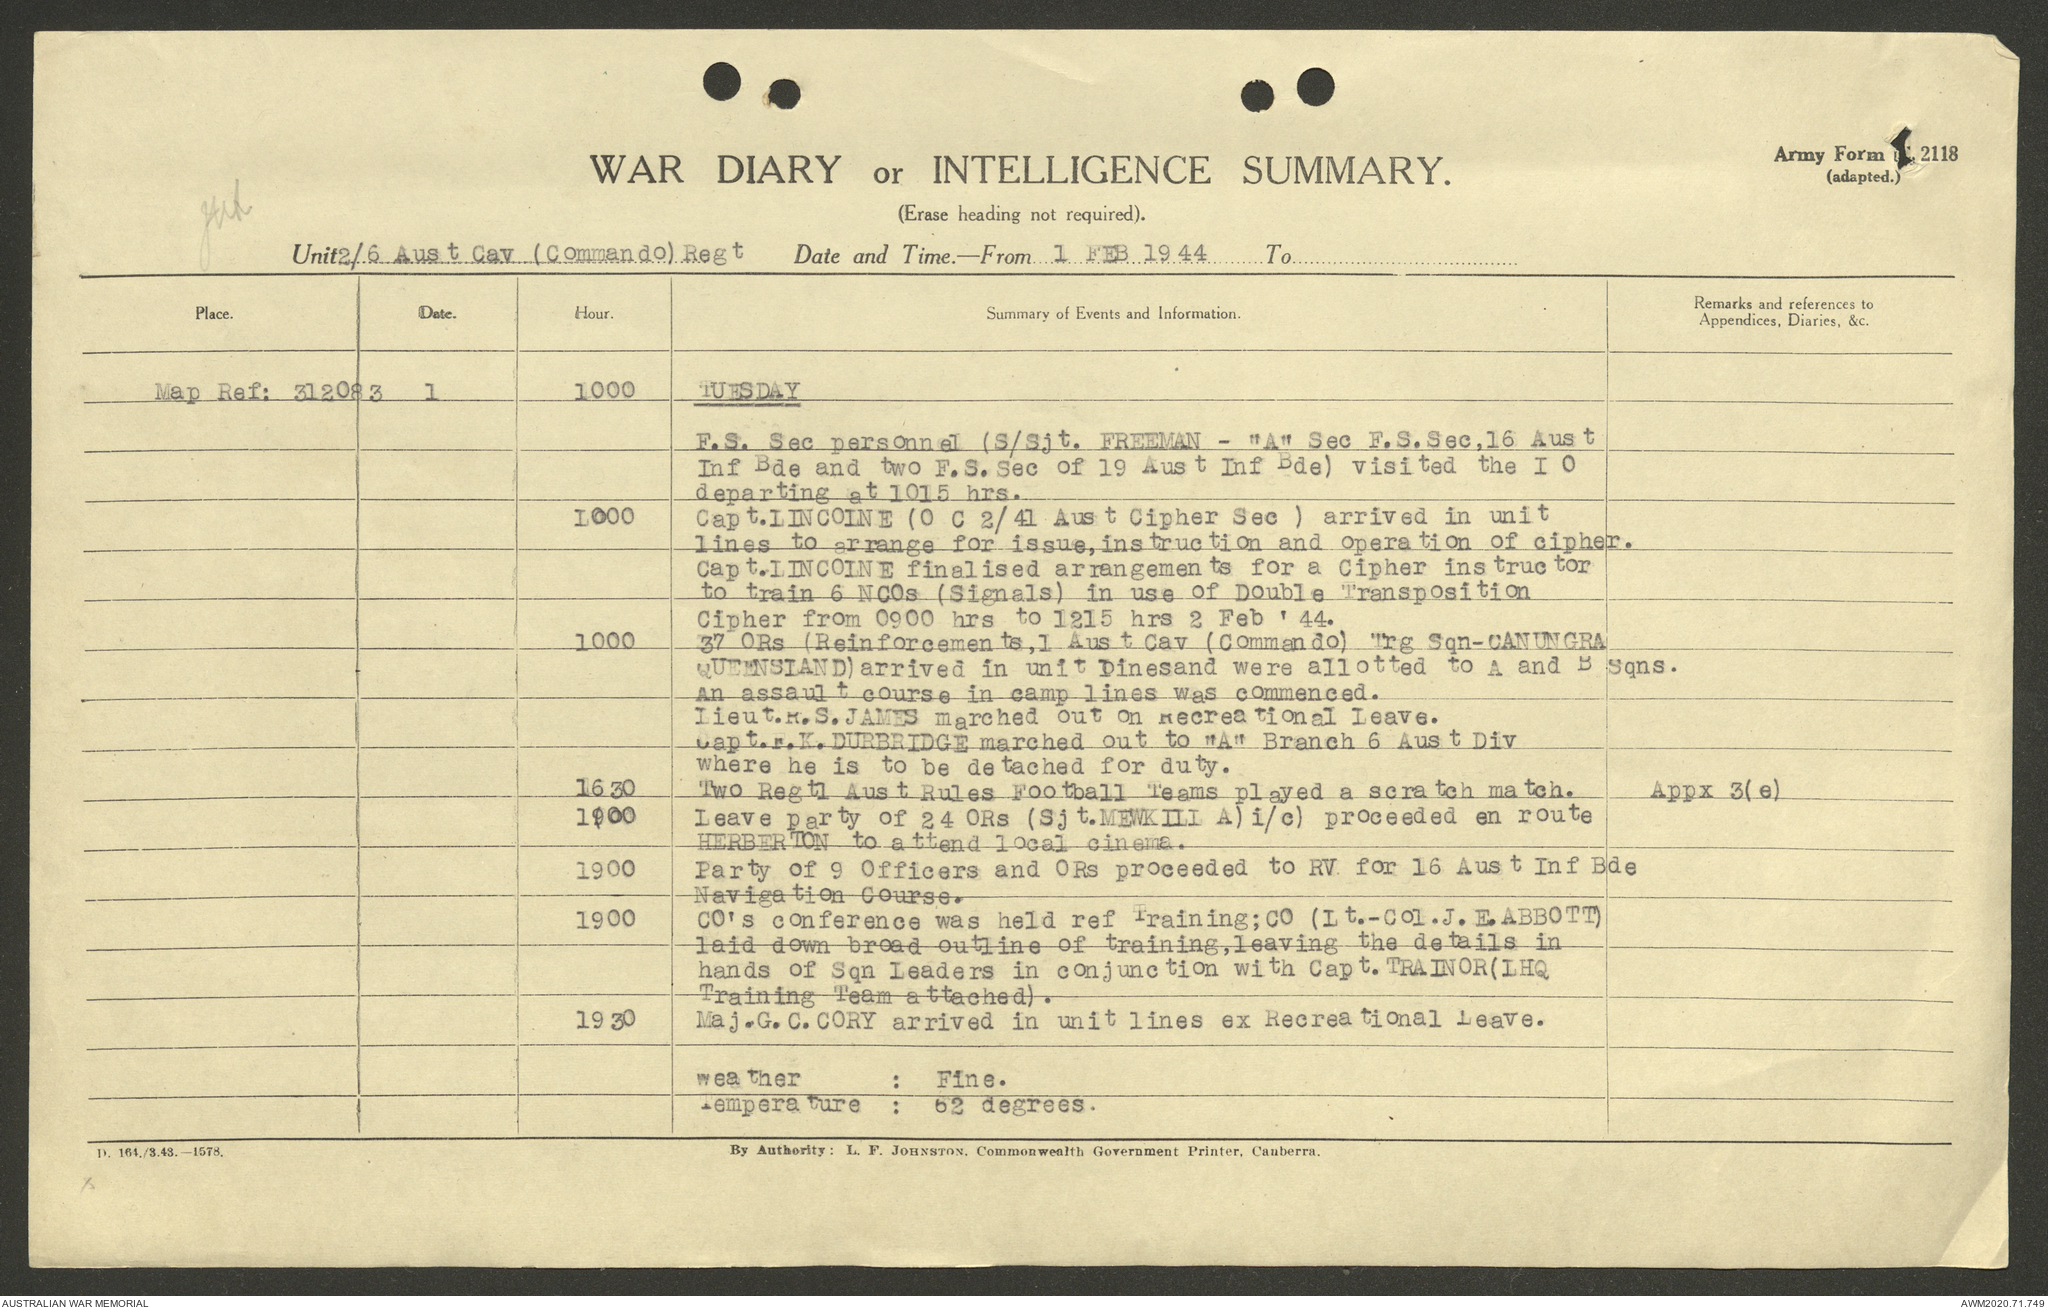 WAR DIARY or INTELLIGENCE SUMMARY.
Army Form 2118
(adapted.)
(Erase heading not required).
Unit 2/6 Aust Cav (Commando) Regt Date and Time.—From 1 FEB 1944 To
Place. Date. Hour. Summary of Events and Information. Remarks and references to
Appendices, Diaries, &c.
Map Ref: 312083 1 1000 TUESDAY
F.S. Sec personnel (S/Sjt. FREEMAN - "A" Sec F.S.Sec,16 Aust
Inf Bde and two F.S.Sec of 19 Aust Inf Bde) visited the I O
departing at 1015 hrs.
1000 Capt.LINCOLNE (O C 2/41 Aust Cipher Sec ) arrived in unit
lines to arrange for issue,instruction and operation of cipher.
Capt.LINCOLNE finalised arrangements for a Cipher instructor
to train 6 NCOs (Signals) in use of Double Transposition
Cipher from 0900 hrs to 1215 hrs 2 Feb ' 44.
1000 37 ORs (Reinforcements,1 Aust Cav (Commando) Trg Sqn-CANUNGRA
QUEENSLAND)arrived in unit Linesand were allotted to A and B Sqns.
An assault course in camp lines was commenced.
Lieut.R.S.JAMES marched out on Recreational Leave.
Capt. K.DURBRIDGE marched out to "A" Branch 6 Aust Div
where he is to be detached for duty.
1630 Two Regtl Aust Rules Football Teams played a scratch match. Appx 3(e)
1900 Leave party of 24 ORs (Sjt.MEWKILL A)i/c) proceeded en route
HERBERTON to attend local cinema.
1900 Party of 9 Officers and ORs proceeded to RV for 16 Aust Inf Bde
Navigation Course.
1900 CO's conference was held ref Training;CO (Lt.-Col.J.E.ABBOTT)
laid down broad outline of training,leaving the details in
hands of Sqn Leaders in conjunction with Capt.TRAINOR(LHQ
Training Team attached).
1930 Maj.G.C.CORY arrived in unit lines ex Recreational Leave.
Weather : Fine.
Temperature : 62 degrees.
D. 164./3.43.—1578. By Authority: L. F. JOHNSTON, Commonwealth Government Printer, Canberra.
AUSTRALIAN WAR MEMORIAL AWM2020.71.749